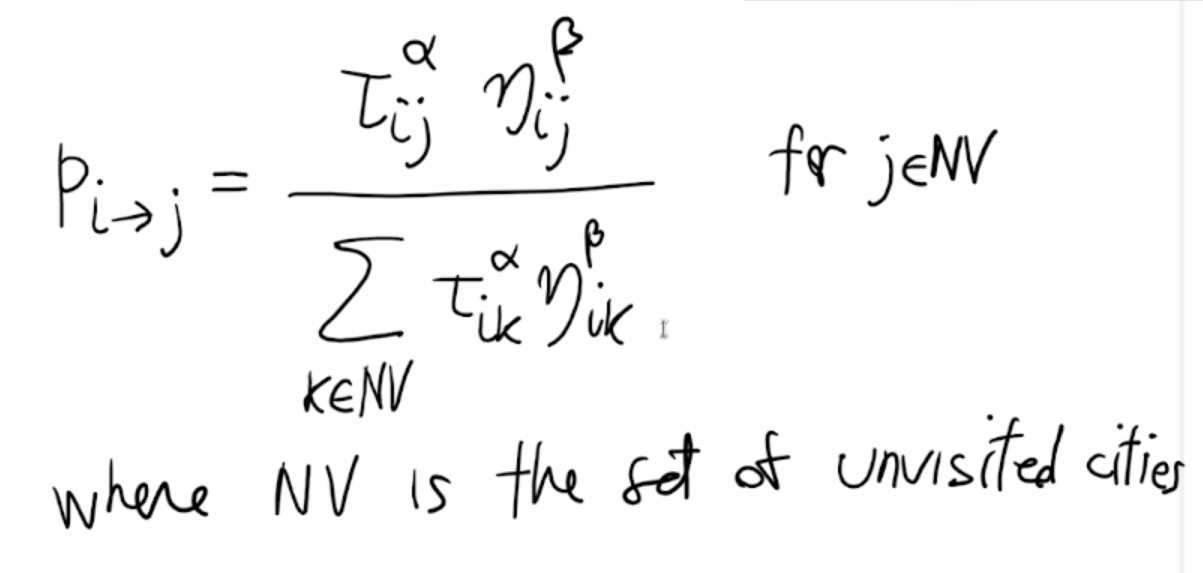 p_{i→j} = \frac{τ_{ij}^α η_{ij}^β}{\sum_{k∈NV} τ_{ik}^α η_{ik}^β} for j∈NV
where NV is the set of unvisited cities